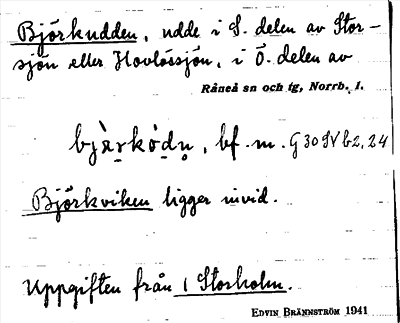 Björkudden, udde i S. delen av Stor-
sjön eller Hovlössjön, i Ö. delen av
Råneå sn och tg, Norrb. l.
bjàrkòdn̥, bf. m. G30SVb2,24
Björkviken ligger invid.
Uppgiften från 1 Storholm.
EDVIN BRÄNNSTRÖM 1941